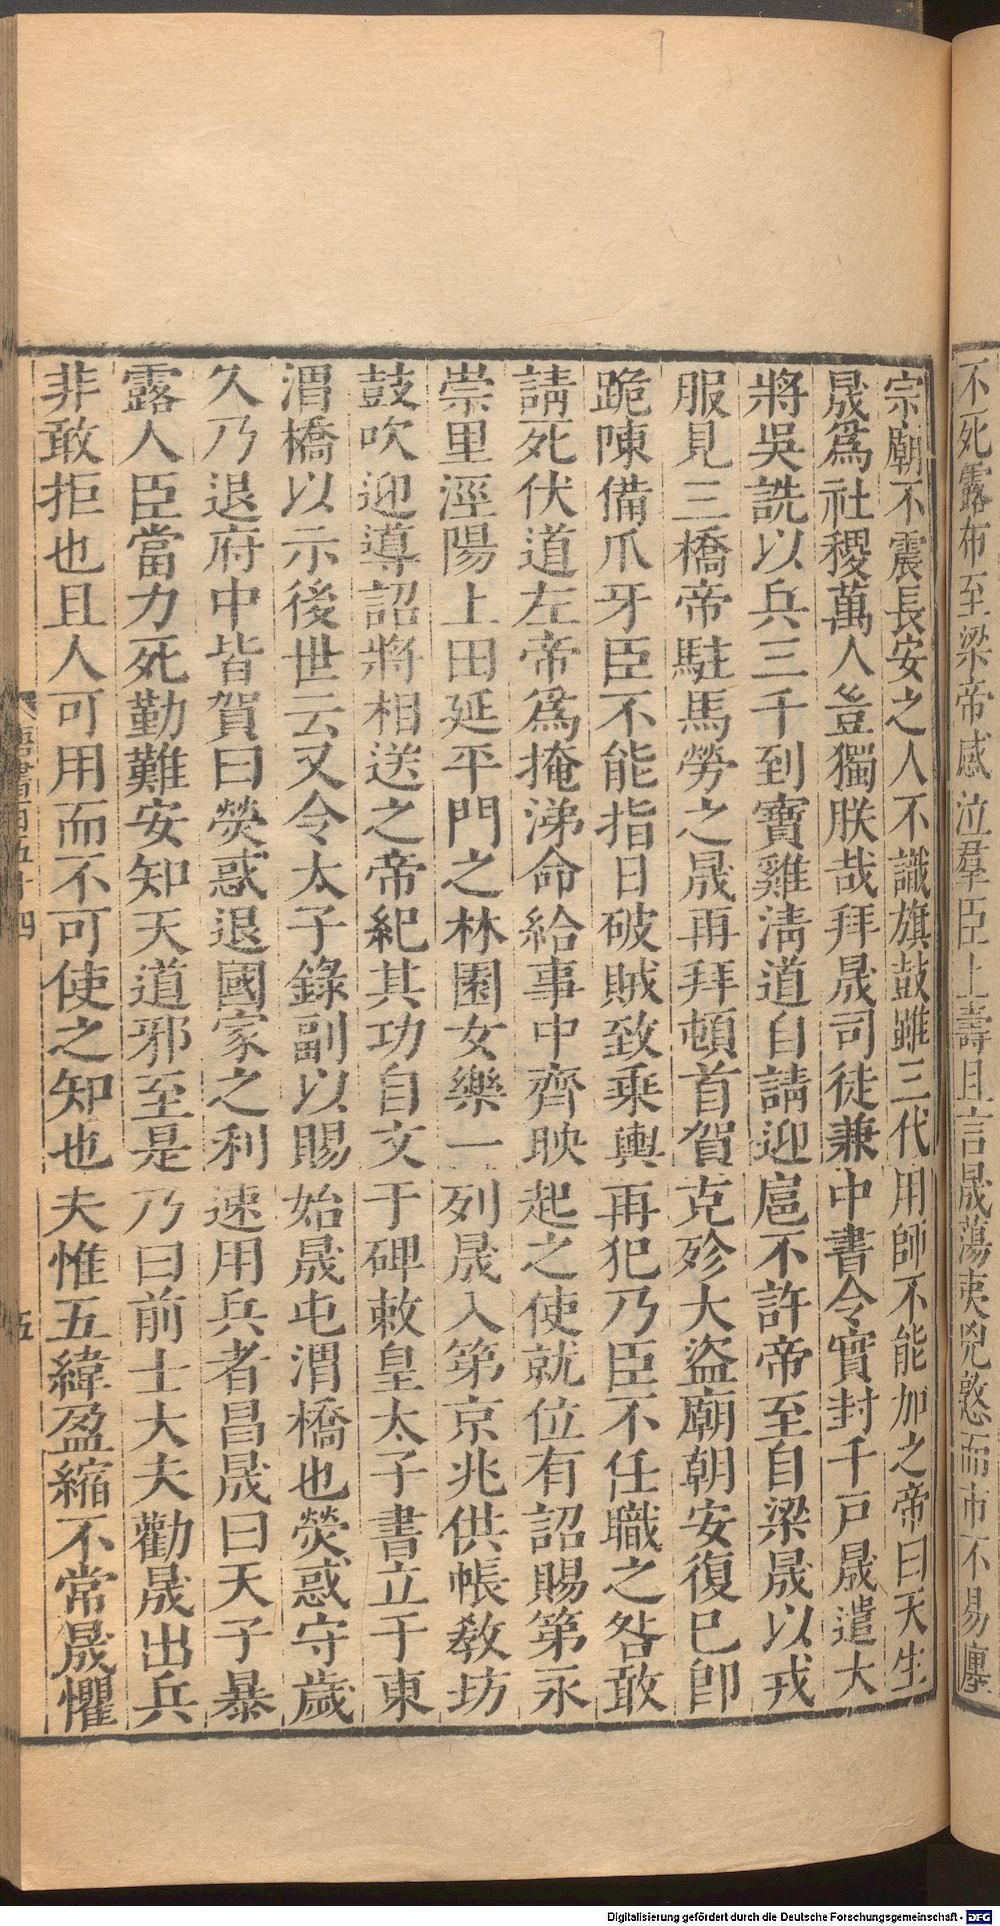 不死露布至梁帝感泣羣臣上壽且言晟蕩夷兇憝而市不易廛
宗廟不震長安之人不識旗鼓雖三代用師不能加之帝曰天生
晟爲社稷萬人豈獨朕哉拜晟司徒兼中書令實封千戸晟遣大
將吳詵以兵三千到寶雞淸道自請迎扈不許帝至自梁晟以戎
服見三橋帝駐馬勞之晟再拜頓首賀克殄大盜廟朝安復巳卽
跪陳備爪牙臣不能指日破賊致乘輿再犯乃臣不任職之咎敢
請死伏道左帝爲掩涕命給事中齊映起之使就位有詔賜第永
崇里涇陽上田延平門之林園女樂一列晟入第京兆供帳敎坊
鼓吹迎導詔將相送之帝紀其功自文于碑敕皇太子書立于東
渭橋以示後世云又令太子錄副以賜始晟屯渭橋也熒惑守歲
久乃退府中皆賀曰熒惑退國家之利速用兵者昌晟曰天子暴
露人臣當力死勤難安知天道邪至是乃曰前士大夫勸晟出兵
非敢拒也且人可用而不可使之知也夫惟五緯盈縮不常晟懼
唐書百五十四
五
Digitalisierung gefördert durch die Deutsche Forschungsgemeinschaft - DFG